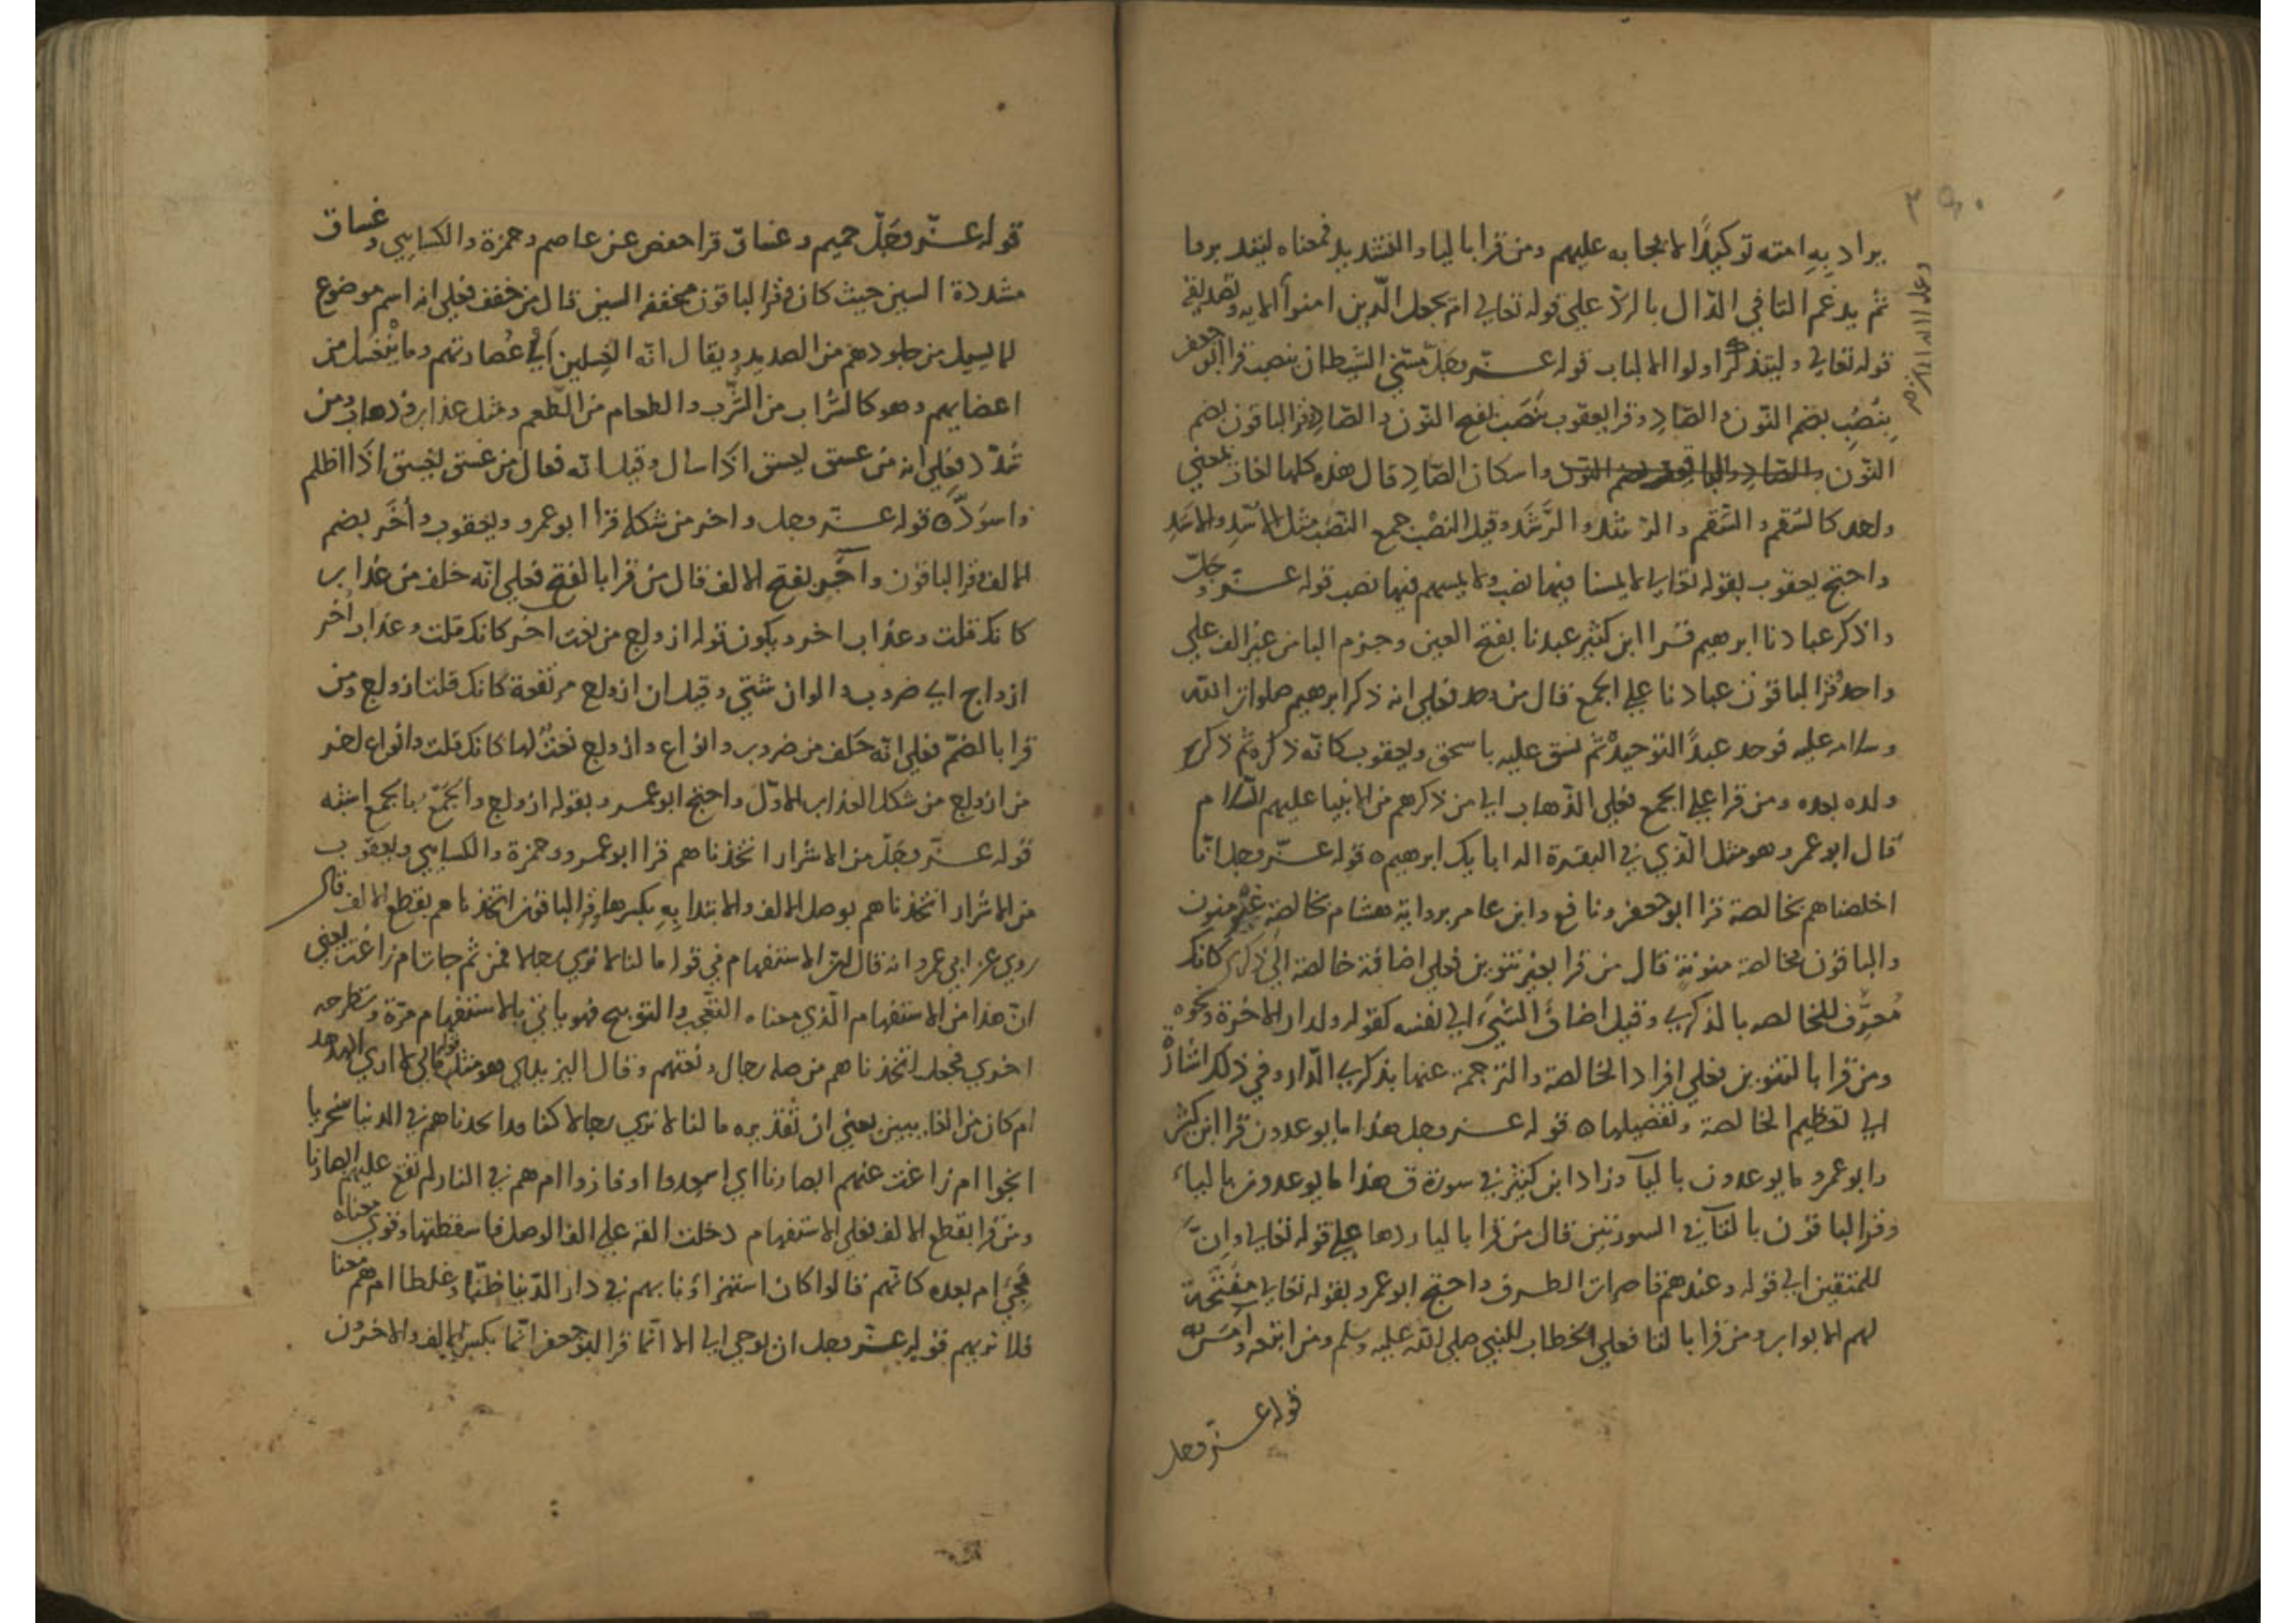 يراد به امته توكيدًا لايجابه عليهم ومن قرا باليا والتشديد فمعناه ليتدبروا
ثم يدغم التا في الدال بالرد على قوله تعالى ام يجعل الذين امنوا الايه وتصديقه
قوله تعالى وليتذكر اولوا الالباب قوله عز وجل مسني الشيطان بنصب قرا ابو جعفر
بنُصُب بضم النون والصاد وقرا يعقوب بنَصَب بفتح النون والصاد وقرا الباقون بضم
النون واسكان الصاد قال هذه كلها لغات بمعنى
واحد كالسُّقم والسَّقم والرُّشد والرَّشَد وقيل النصْب جمع النصَب مثل الاُسْد والاَسَد
واحتج يعقوب بقوله تعالى لا يمسنا فيها نصب ولا يمسهم فيها نصب قوله عز وجلّ
واذكر عبادنا ابرهيم قرا ابن كثير عبدنا بفتح العين وجزم البا من غير الف على
واحد وقرا الباقون عبادنا على الجمع قال من وحد فعلى انه ذكر ابرهيم صلوات الله
وسلامه عليه فوحد عبدًا لتوحيده ثم نسق عليه باسحق ويعقوب كانه ذكره ثم ذكر
ولده بعده ومن قرا على الجمع فعلى الذهاب الى من ذكرهم من الانبيا عليهم السلام
قال ابو عمرو وهو مثل الذي في البقرة اله ابايك ابرهيم ه قوله عز وجل انا
اخلصناهم بخالصة قرا ابو جعفر ونافع وابن عامر برواية هشام بخالصة غير منون
والباقون بخالصة منونة قال من قرا بغير تنوين فعلى اضافة خالصة الى ذكرى كانك
مُعرِّف للخالصه بالذكرى وقيل اضاف الشيء الى نفسه كقوله ولدار الاخرة ونحوه
ومن قرا بالتنوين فعلى افراد الخالصة والترجمة عنها بذكرى الدار وفي ذلك اشارة
الى تعظيم الخالصة وتفضيلها ه قوله عز وجل هذا ما يوعدون قرا ابن كثير
وابو عمرو ما يوعدون باليآ وزاد ابن كثير في سورة ق هذا ما يوعدون باليآء
وقرا الباقون بالتآ في السورتين قال من قرا باليا ردها على قوله تعالى وانّ
للمتقين الى قوله وعندهم قاصرات الطرف واحتج ابو عمرو بقوله تعالى مفتّحة
لهم الابواب ومن قرا بالتا فعلى الخطاب للنبي صلى الله عليه وسلم ومن اتبعه وآمن به
قوله عز وجل
قوله عز وجلّ حميم وغساق قرا حفص عن عاصم وحمزة والكسايي وغساق
مشددة السين حيث كان وقرا الباقون مخففه السين قال من خفف فعلى انه اسم موضوع
لما يسيل من جلودهم من الصديد ويقال انه الغسلين اي عُصارتهم وما ينغسل من
اعضايهم وهو كالشراب من الشرب والطعام من الطعم ومثل عذاب وذهاب ومن
شدّد فعلى انه من غسق يغسق اذا سال وقيل انه فعال من غسق يغسق اذا اظلم
واسودّ ه قوله عز وجل واخر من شكله قرا ابو عمرو ويعقوب وأُخَر بضم
الالف وقرا الباقون وآخَر بفتح الالف قال من قرا بالفتح فعلى انه خلف من عذاب
كانك قلت وعذاب اخر ويكون قوله ازواج من نعت اخر كانك قلت وعذاب أخر
ازواج اي ضروب والوان شتى وقيل ان ازواج مرتفعة كانك قلت ازواج ومن
قرا بالضمّ فعلى انّه خلف من ضروب وانواع وازواج نعتٌ لها كانك قلت وانواع اخر
من ازواج من شكل العذاب الاوّل واحتج ابو عمرو بقوله ازواج والجمع بالجمع اشبه
قوله عز وجلّ من الاشرار اتخذناهم قرا ابو عمرو وحمزة والكسايي ويعقوب
من الاشرار اتخذناهم بوصل الالف والابتدا به بكسرها وقرا الباقون اتخذناهم بقطع الالف قال
روي عن ابي عمرو انه قال لان الاستفهام في قوله ما لنا لا نرى رجالا فمن ثم جات ام زاغت يعني
ان هذا من الاستفهام الذي معناه التعجب والتوبيخ فهو ياتي بالاستفهام مرّة ويطرحه
اخرى فجعل اتخذناهم من صله رجال ونعتهم وقال اليزيدي هو مثل قوله مالي لا ارى الهدهد
ام كان من الغايبين يعني ان تقديره ما لنا لا نرى رجالا كنا قد اتخذناهم في الدنيا سخريا
انجوا ام زاغت عنهم ابصارنا اي اسعدوا او فازوا ام هم في النار لم تقع عليهم ابصارنا
ومن قرا بقطع الالف فعلى الاستفهام دخلت الفه على الف الوصل فاسقطتها وقوي معناه
مجيء ام بعده كانهم قالوا كان استهزاؤنا بهم في دار الدنيا ظنّا وغلطا ام هم معنا
فلا نريهم قوله عز وجل ان يوحى الي الا انما قرا ابو جعفر انما بكسر الالف والاخرون